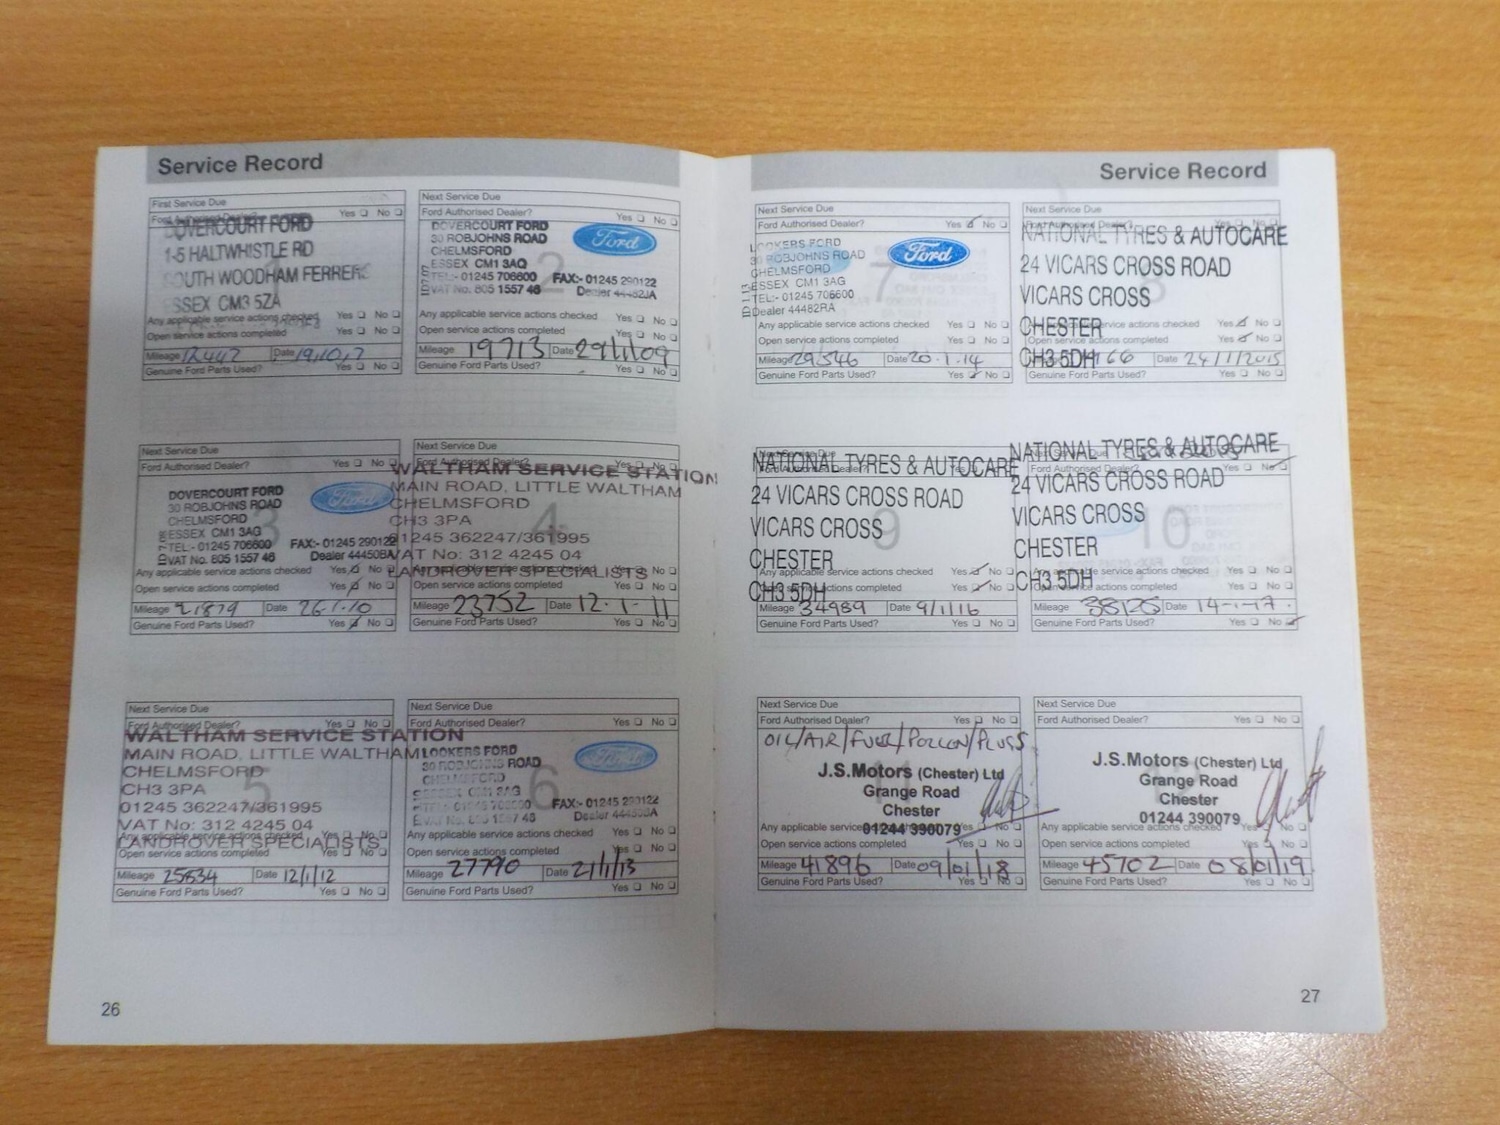 Service Record
First Service Due
Ford Authorised Dealer? Yes No
DOVERCOURT FORD
1-5 HALTWHISTLE RD
SOUTH WOODHAM FERRERS
ESSEX CM3 5ZA
Any applicable service actions checked Yes No
Open service actions completed Yes No
Mileage 12447 Date 19,10,7
Genuine Ford Parts Used? Yes No
Next Service Due
Ford Authorised Dealer? Yes No
DOVERCOURT FORD
30 ROBJOHNS ROAD
CHELMSFORD
ESSEX CM1 3AQ
TEL:- 01245 706600 FAX:- 01245 290122
VAT No. 805 1557 46 Dealer
2
Any applicable service actions checked Yes No
Open service actions completed Yes No
Mileage 19713 Date 29/1/09
Genuine Ford Parts Used? Yes No
Ford
Next Service Due
Ford Authorised Dealer? Yes No
DOVERCOURT FORD
30 ROBJOHNS ROAD
CHELMSFORD
ESSEX CM1 3AG
TEL:- 01245 706600 FAX:- 01245 290122
VAT No. 805 1557 46 Dealer
3
Ford
Any applicable service actions checked Yes No
Open service actions completed Yes No
Mileage 21879 Date 26.1.10
Genuine Ford Parts Used? Yes No
Next Service Due
WALTHAM SERVICE STATION
MAIN ROAD, LITTLE WALTHAM
CHELMSFORD
CH3 3PA
01245 362247/361995
VAT No: 312 4245 04
LANDROVER SPECIALISTS
4
Open service actions completed Yes No
Mileage 23752 Date 12.1.11
Genuine Ford Parts Used? Yes No
Next Service Due
Ford Authorised Dealer? Yes No
WALTHAM SERVICE STATION
MAIN ROAD, LITTLE WALTHAM
CHELMSFORD
CH3 3PA
01245 362247/361995
VAT No: 312 4245 04
LANDROVER SPECIALISTS
5
Any applicable service actions checked Yes No
Open service actions completed Yes No
Mileage 25634 Date 12/1/12
Genuine Ford Parts Used? Yes No
Next Service Due
Ford Authorised Dealer? Yes No
LOOKERS FORD
30 ROBJOHNS ROAD
CHELMSFORD
FAX:- 01245 290122
Dealer
6
Ford
Any applicable service actions checked Yes No
Open service actions completed Yes No
Mileage 27790 Date 21/1/13
Genuine Ford Parts Used? Yes No
26
Service Record
Next Service Due
Ford Authorised Dealer? Yes No
LOOKERS FORD
30 ROBJOHNS ROAD
CHELMSFORD
ESSEX CM1 3AG
TEL:- 01245 706600
Dealer 44482RA
7
Ford
Any applicable service actions checked Yes No
Open service actions completed Yes No
Mileage 29546 Date 20.1.14
Genuine Ford Parts Used? Yes No
Next Service Due
NATIONAL TYRES & AUTOCARE
24 VICARS CROSS ROAD
VICARS CROSS
CHESTER
CH3 5DH
8
Any applicable service actions checked Yes No
Open service actions completed Yes No
Date 24/1/2015
Genuine Ford Parts Used? Yes No
NATIONAL TYRES & AUTOCARE
24 VICARS CROSS ROAD
VICARS CROSS
CHESTER
CH3 5DH
9
Any applicable service actions checked Yes No
Open service actions completed Yes No
Mileage 34989 Date 9/1/16
Genuine Ford Parts Used? Yes No
NATIONAL TYRES & AUTOCARE
24 VICARS CROSS ROAD
VICARS CROSS
CHESTER
CH3 5DH
10
Any applicable service actions checked Yes No
Open service actions completed Yes No
Mileage 38125 Date 14-1-17.
Genuine Ford Parts Used? Yes No
Next Service Due
Ford Authorised Dealer? Yes No
OIL/AIR/FUEL/POLLEN/PLUGS
J.S.Motors (Chester) Ltd
Grange Road
Chester
01244 390079
11
Any applicable service actions checked Yes No
Open service actions completed Yes No
Mileage 41896 Date 09/01/18
Genuine Ford Parts Used? Yes No
Next Service Due
Ford Authorised Dealer? Yes No
J.S.Motors (Chester) Ltd
Grange Road
Chester
01244 390079
Any applicable service actions checked Yes No
Open service actions completed Yes No
Mileage 45702 Date 08/01/19
Genuine Ford Parts Used? Yes No
27